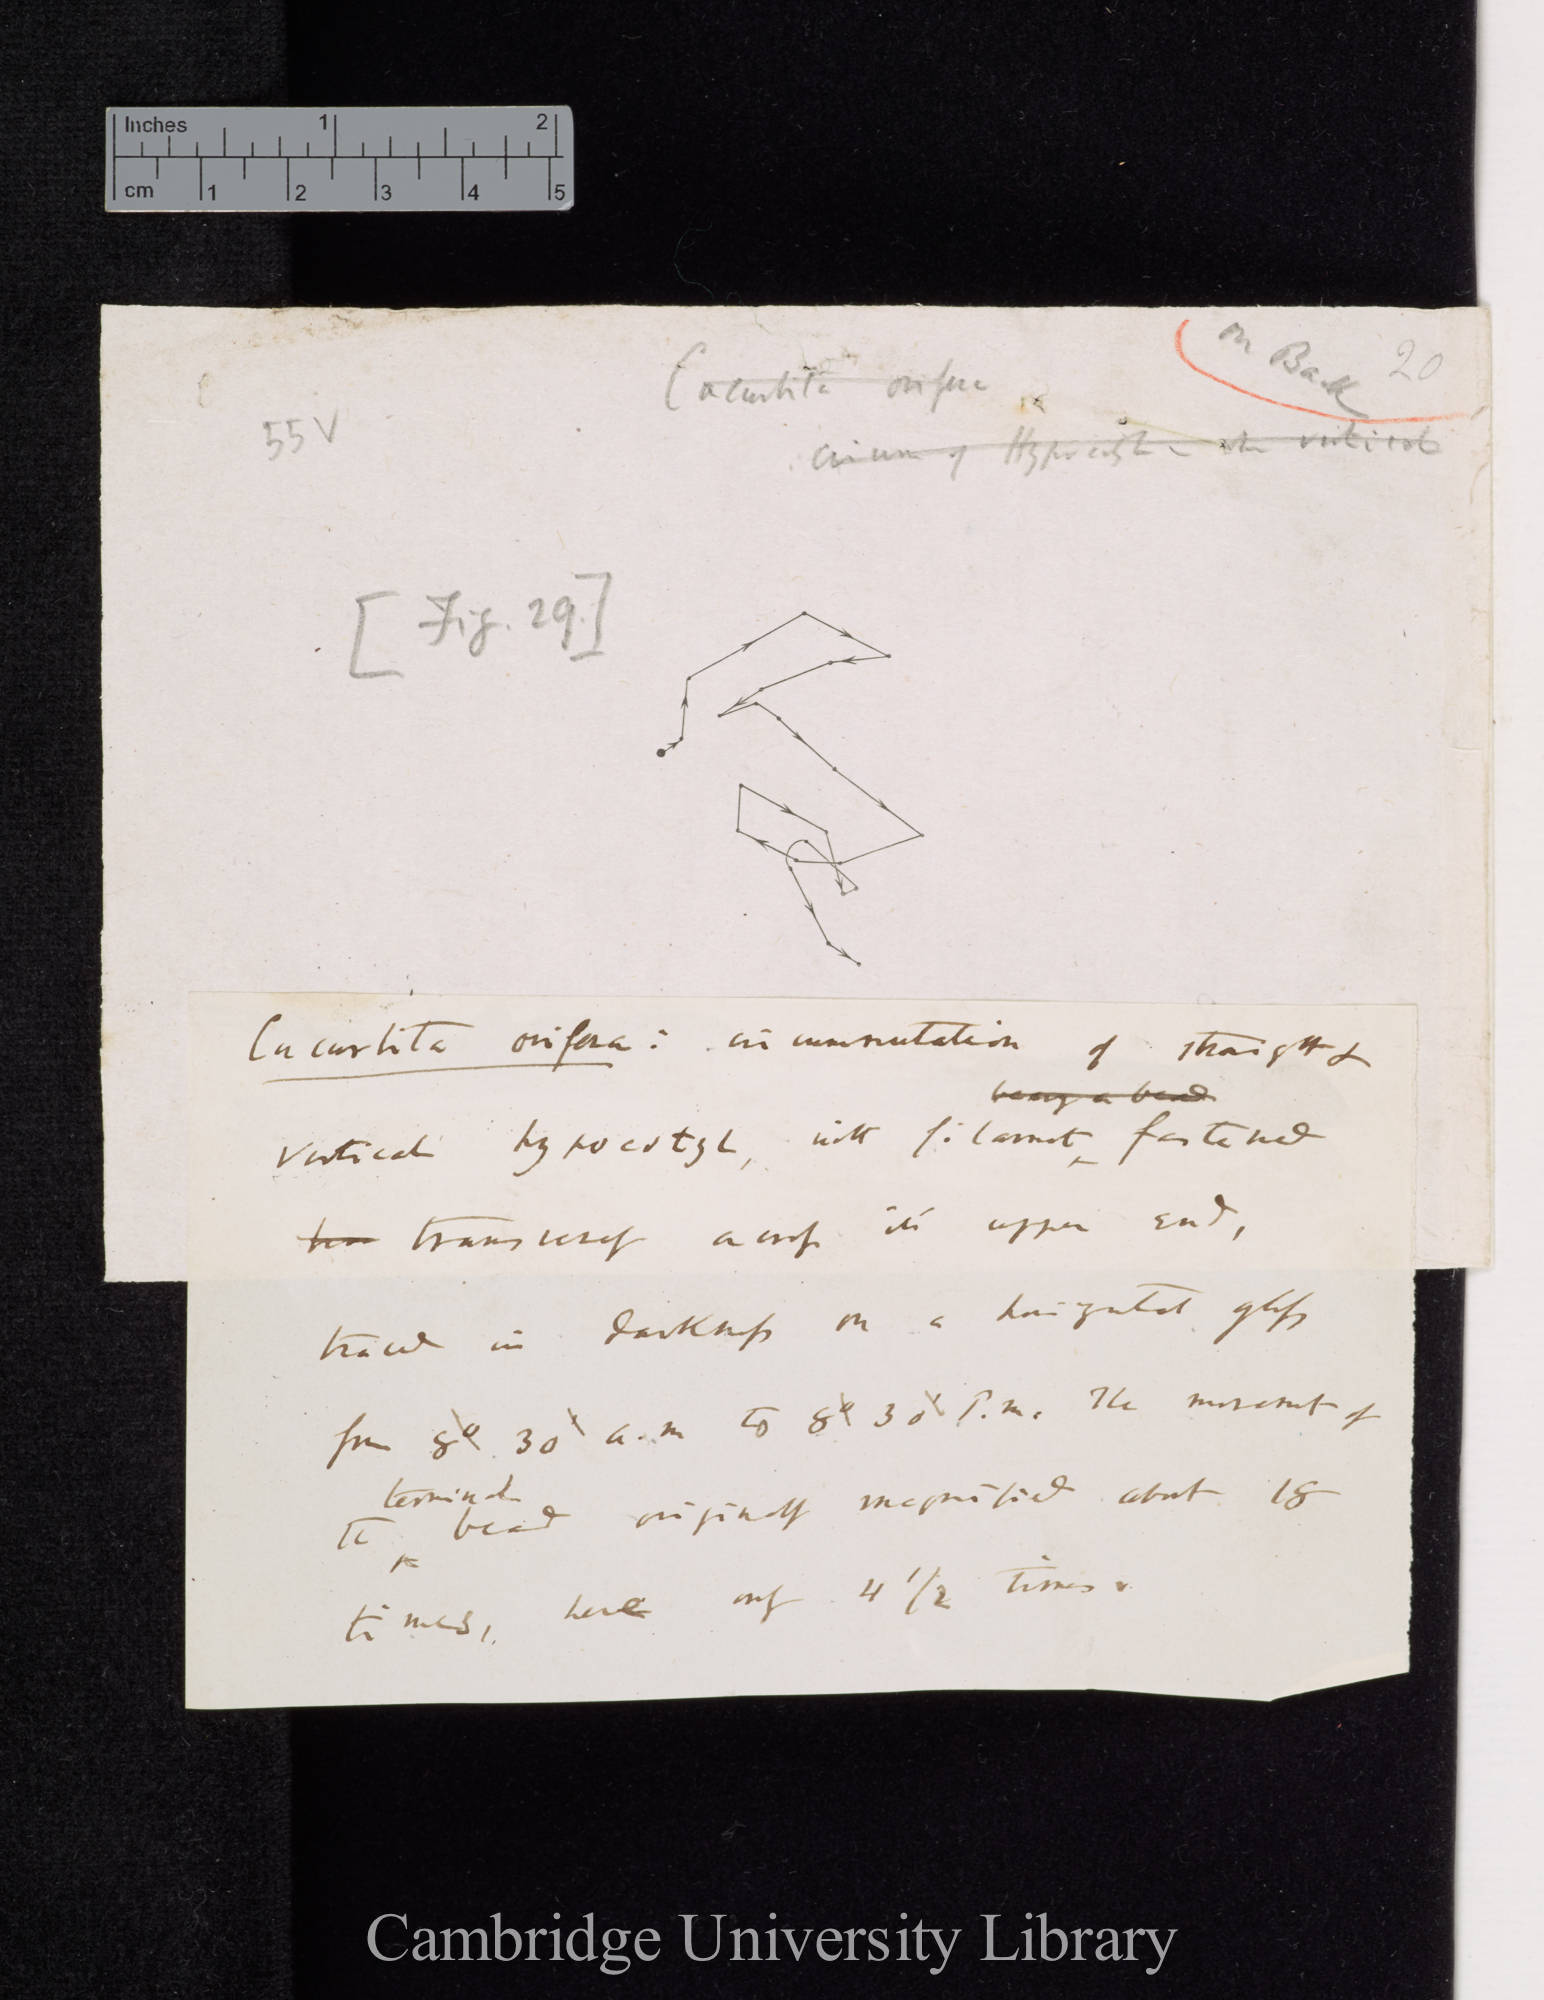 Inches 1 2
cm 1 2 3 4 5
on Back 20
Cucurbita ovifera
55 V
circum of Hypocotyl when vertical
[Fig. 29.]
Cucurbita ovifera: circumnutation of straight &
being a bead
vertical hypocotyl, with filament fastened
transversely across its upper end,
traced in darkness on a horizontal glass
from 8° 30' a.m to 8° 30' P.m. The movement of
terminal
the bead originally magnified about 18
times, here only 4 1/2 times.
Cambridge University Library